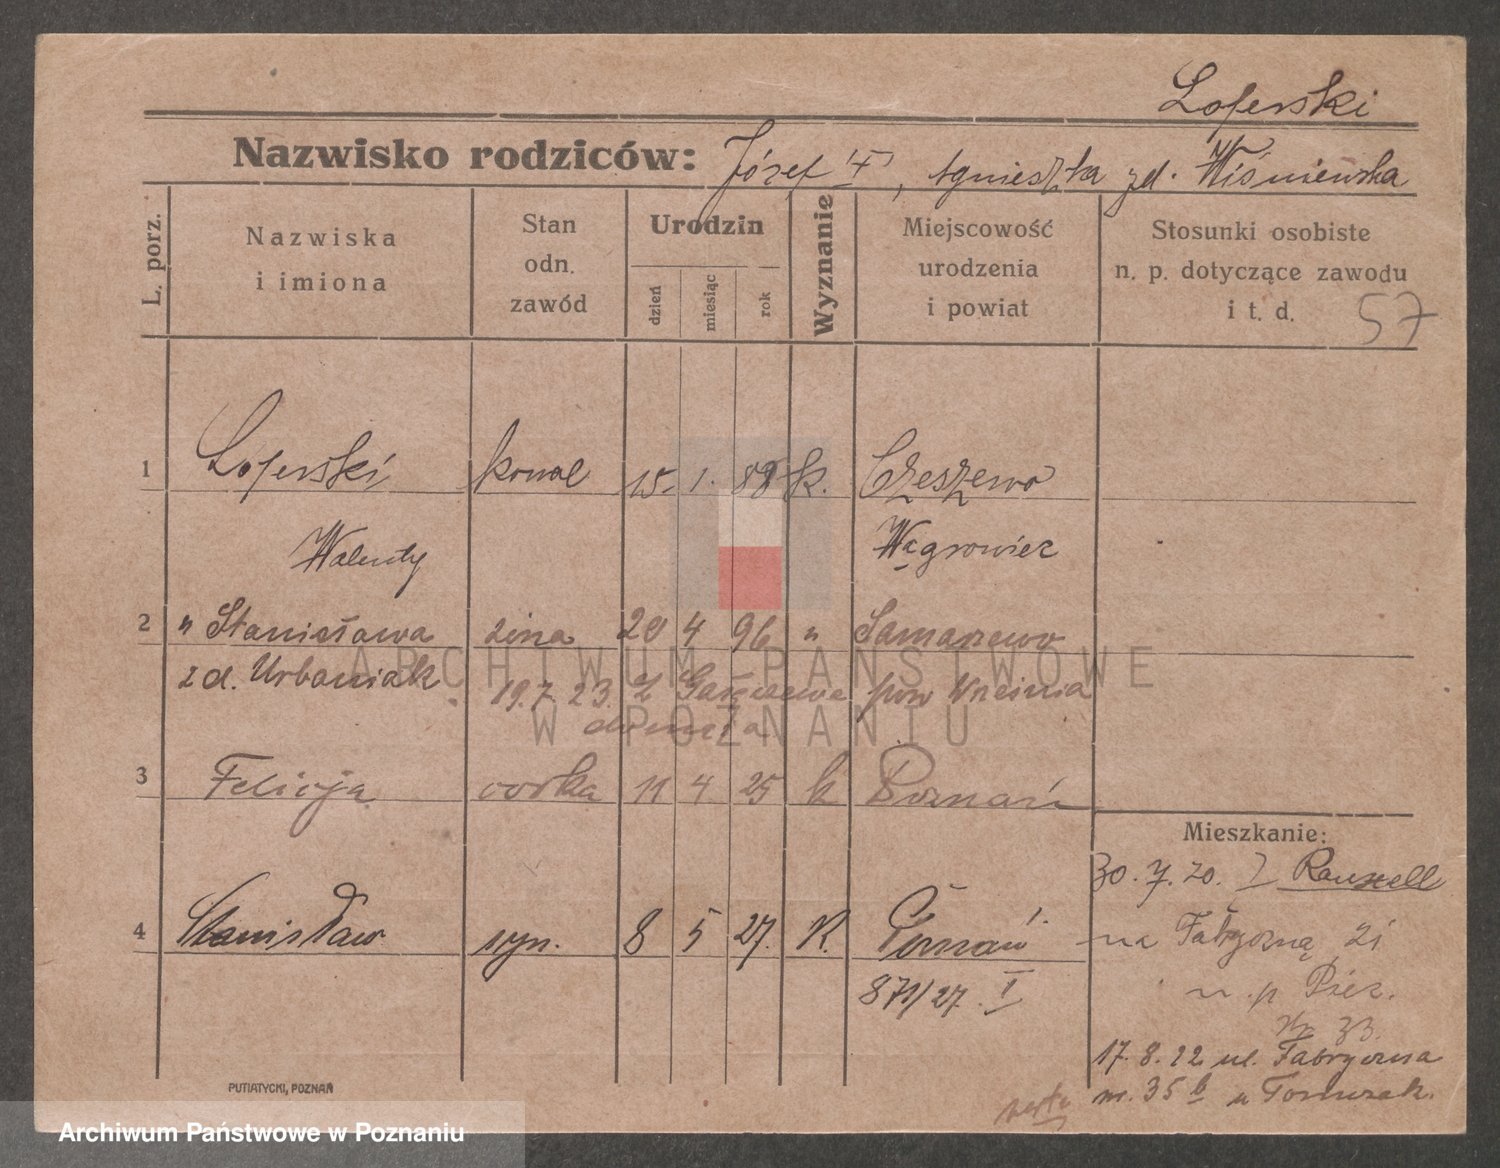 Loferski
Nazwisko rodziców: Józef, Agnieszka zd. Wiśniewska
L. porz.
Nazwiska
i imiona
Stan
odn.
zawód
Urodzin
dzień
miesiąc
rok
Wyznanie
Miejscowość
urodzenia
i powiat
Stosunki osobiste
n. p. dotyczące zawodu
i t. d.
57
1 Loferski kowal 15. 1. 88 k. Czeszewo
Walenty Wągrowiec
2 " Stanisława żona 20 4 96 " Samarzewo
zd. Urbaniak 19.7.23. z pow Września
3 Felicja córka 11 4 25 k Poznań
Mieszkanie:
30. 7. 20.
4 Stanisław syn. 8 5 27. K. Poznań
na Fabryczną 21
871/27. I
n. p.
Nr 33.
17. 8. 22 ul. Fabryczna
nr. 35 b u Tomczak.
verte
PUTIATYCKI, POZNAŃ
ARCHIWUM PAŃSTWOWE
W POZNANIU
Archiwum Państwowe w Poznaniu